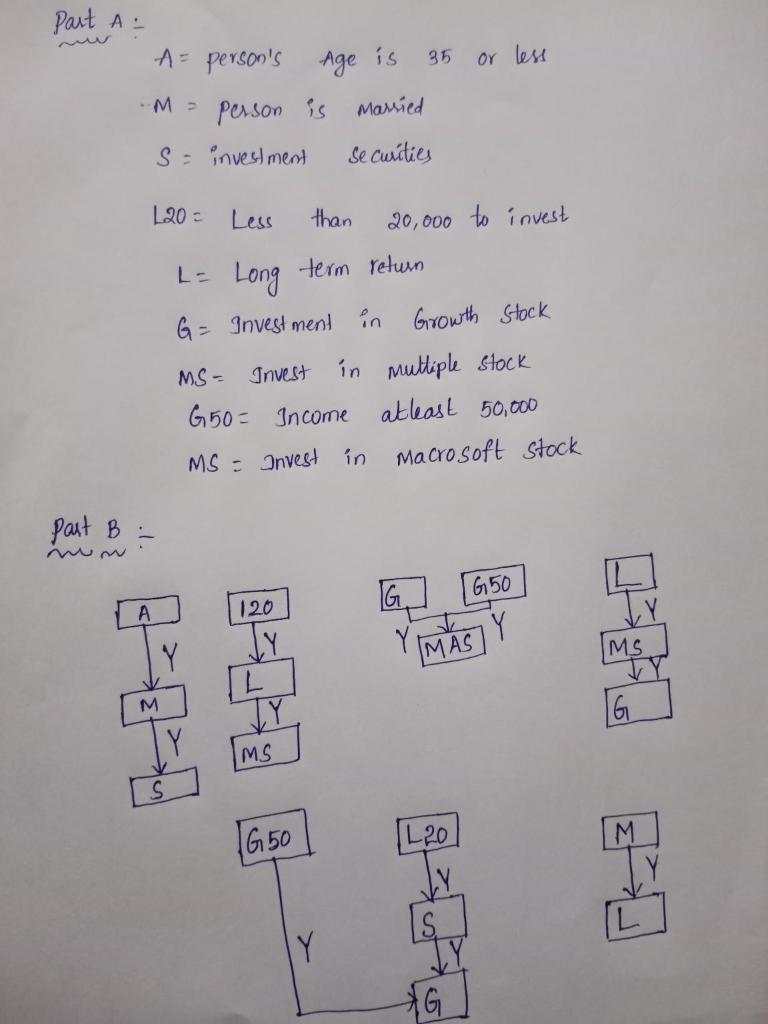 Part A :-
A = person's Age is 35 or less
M = person is Married
S = investment Securities
L20 = Less than 20,000 to invest
L = Long term return
G = Investment in Growth Stock
MS = Invest in Multiple Stock
G50 = Income atleast 50,000
MS = Invest in Macrosoft Stock
Part B :-
A
Y
M
Y
S
120
Y
L
Y
MS
G G50
Y MAS Y
L
Y
MS
Y
G
G50
Y
L20
Y
S
Y
G
M
Y
L